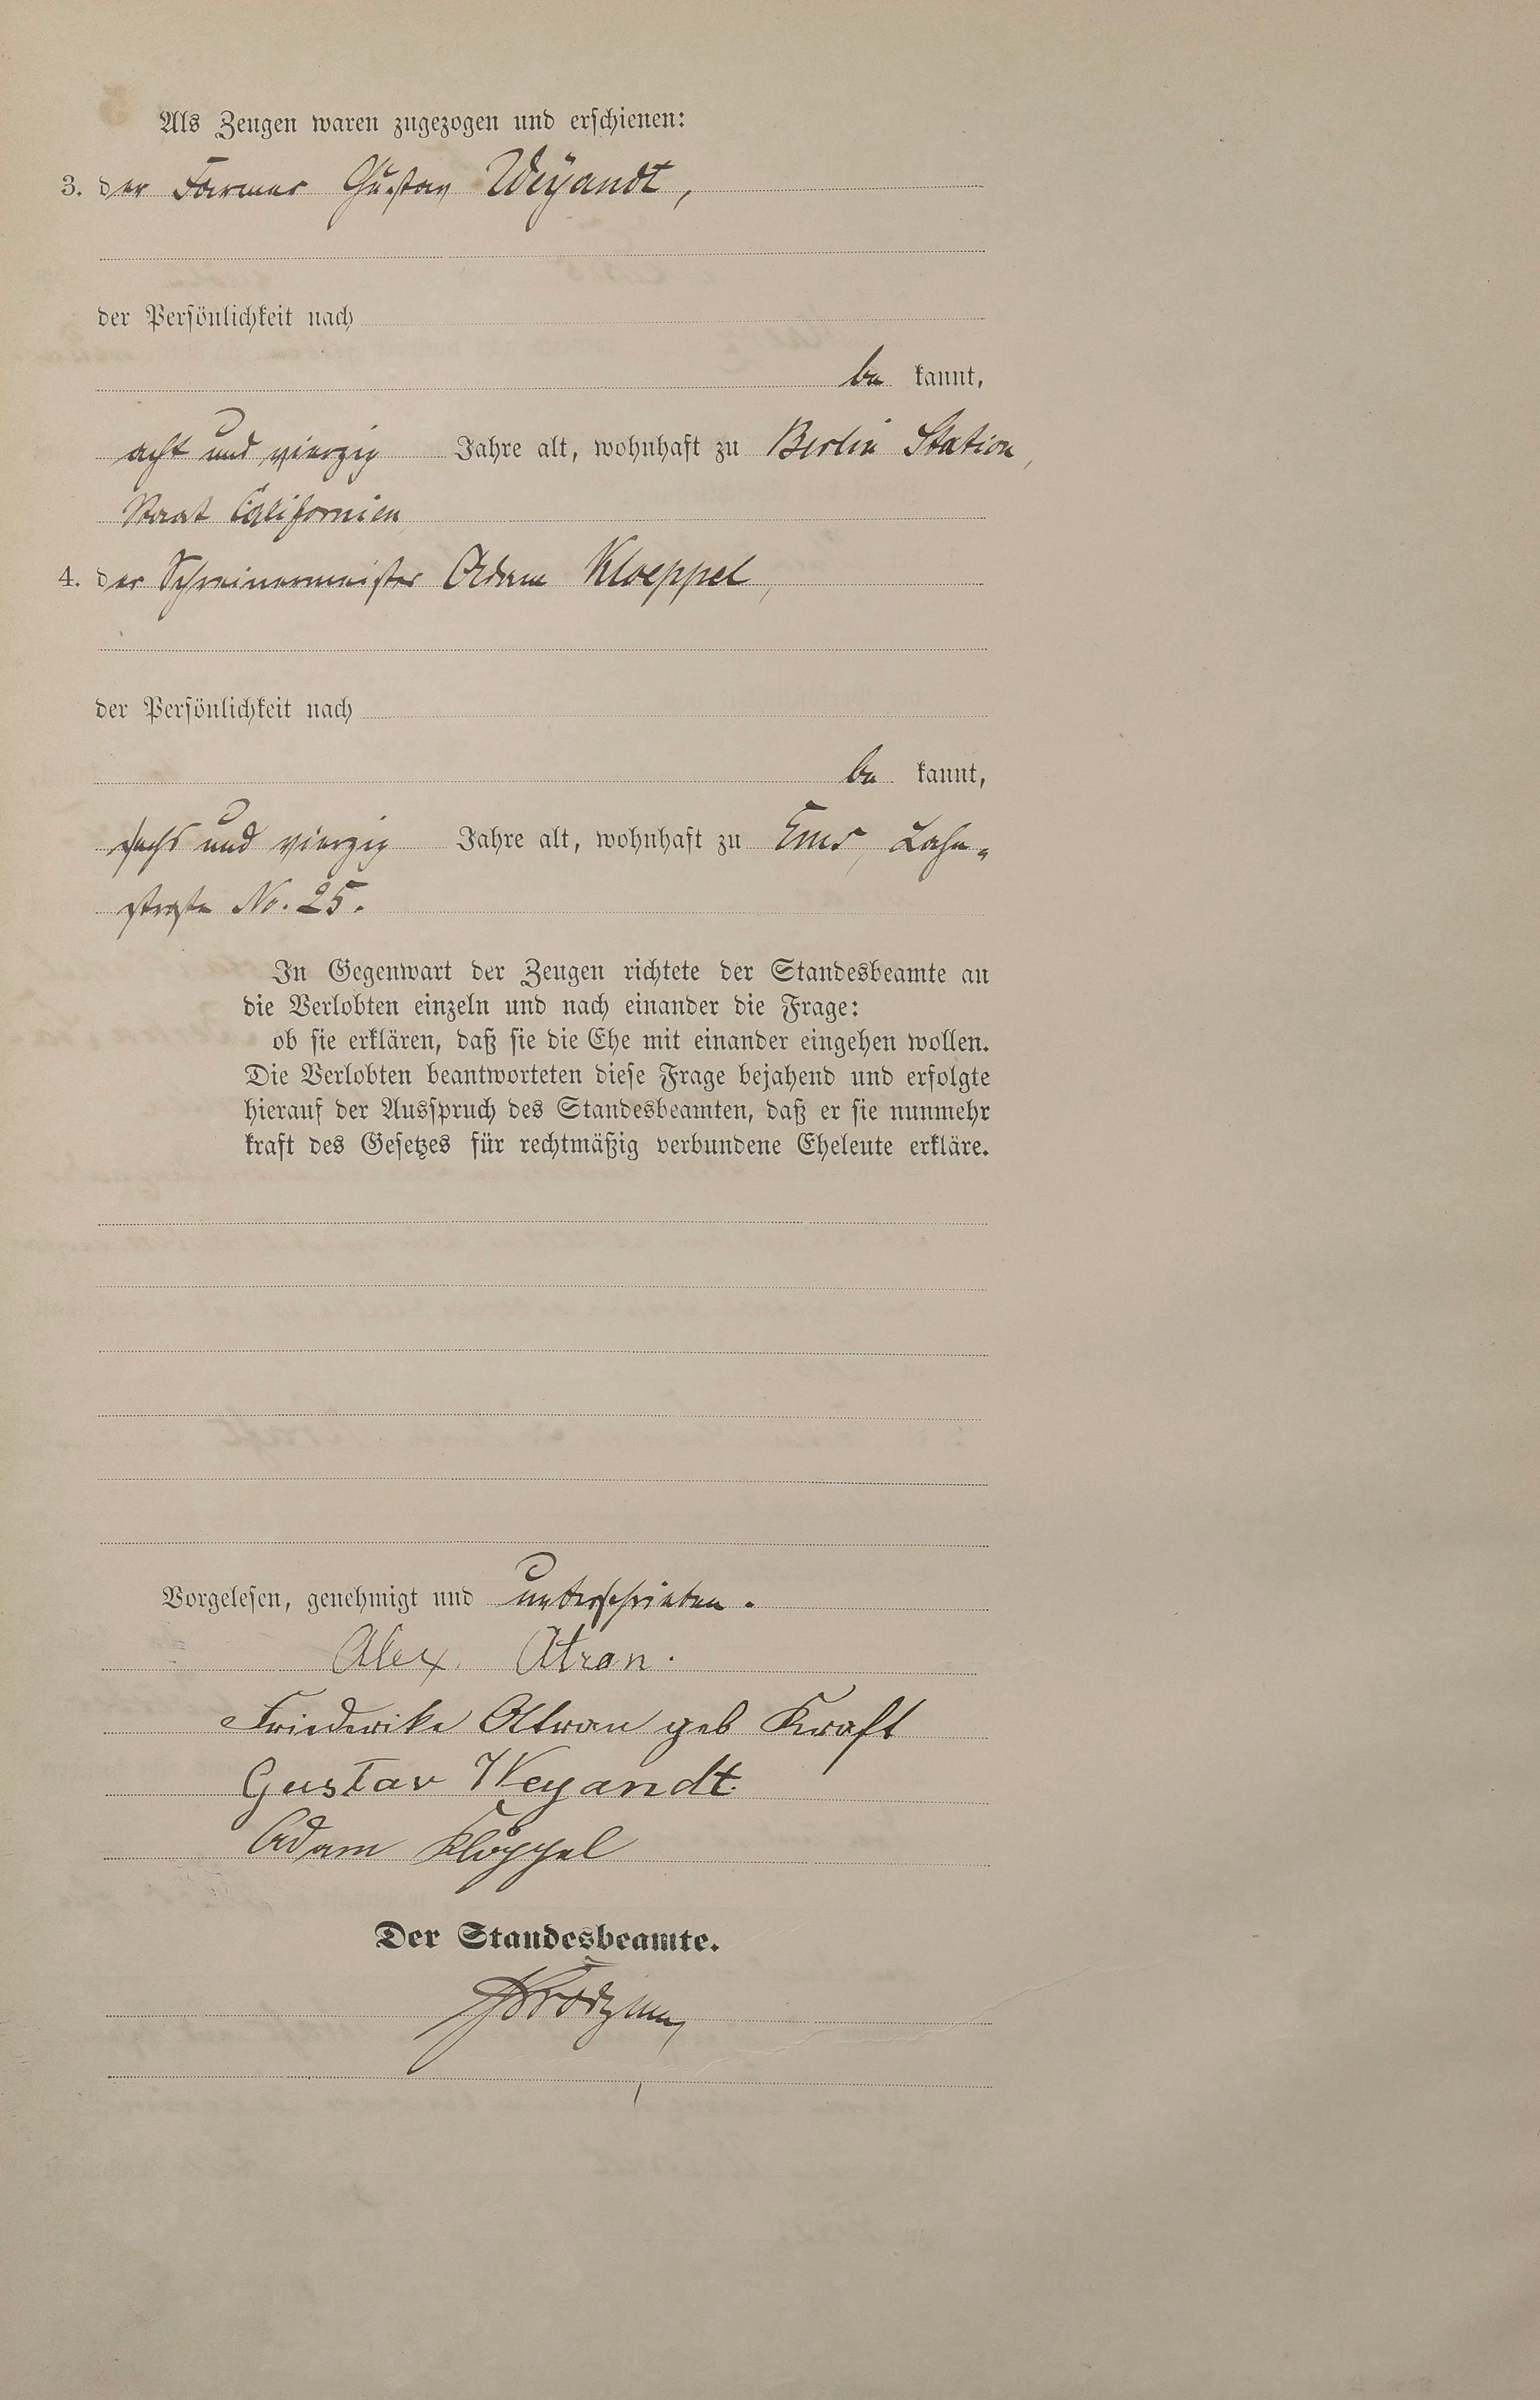 Als Zeugen waren zugezogen und erschienen:
3. der Farmer Gustav Weyandt,
der Persönlichkeit nach
be kannt,
acht und vierzig Jahre alt, wohnhaft zu Berlin Station,
Staat Californien
4. der Schreinermeister Adam Kloeppel,
der Persönlichkeit nach
be kannt,
sechs und vierzig Jahre alt, wohnhaft zu Ems, Lahn-
straße No. 25.
In Gegenwart der Zeugen richtete der Standesbeamte an
die Verlobten einzeln und nach einander die Frage:
ob sie erklären, daß sie die Ehe mit einander eingehen wollen.
Die Verlobten beantworteten diese Frage bejahend und erfolgte
hierauf der Ausspruch des Standesbeamten, daß er sie nunmehr
kraft des Gesetzes für rechtmäßig verbundene Eheleute erkläre.
Vorgelesen, genehmigt und unterschrieben.
Alex. Atran.
Friederike Atran geb Kraft
Gustav Weyandt.
Adam Klöppel
Der Standesbeamte.